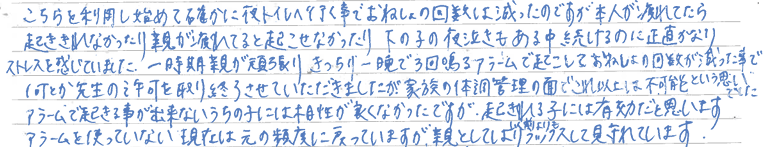 こちらを利用し始めて確かに夜トイレへ行く事でおねしょの回数は減ったのですが本人が疲れてたら
起ききれなかったり親が疲れてると起こせなかったり 下の子の夜泣きもある中続けるのに正直かなり
ストレスを感じていました. 一時期親が頑張り きっちり一晩で3回鳴るアラームで起こしておねしょの回数が減った事で
何とか先生の許可を取り終了させていただきましたが家族の体調管理の面でこれ以上は不可能という思いでした
アラームで起きる事が出来ないうちの子には相性が良くなかったですが、起きれる子には有効だと思います
アラームを使っていない現在は元の頻度に戻っていますが、親としては以前よりもリラックスして見守れています.